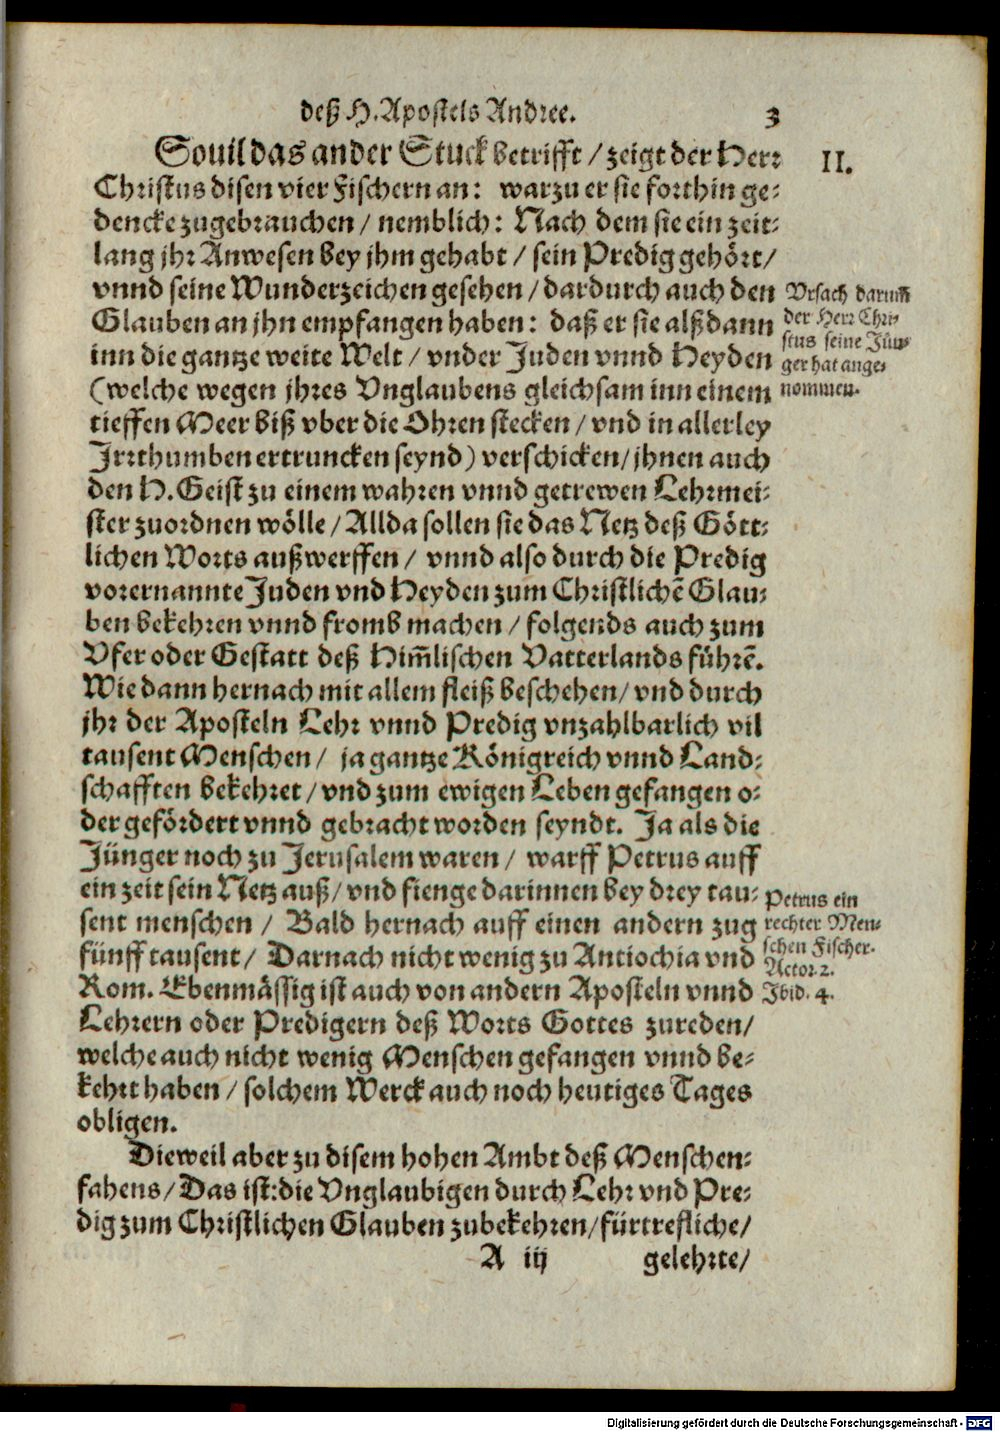 deß H. Apostels Andree. 3
Souil das ander Stuck betrifft / zeigt der Herr
II.
Christus disen vier Fischern an: warzu er sie forthin ge-
dencke zugebrauchen / nemblich: Nach dem sie ein zeit-
lang jhr Anwesen bey jhm gehabt / sein Predig gehört /
vnnd seine Wunderzeichen gesehen / dardurch auch den
Glauben an jhn empfangen haben: daß er sie alßdann
inn die gantze weite Welt / vnder Juden vnnd Heyden
(welche wegen jhres Vnglaubens gleichsam inn einem
tieffen Meer biß vber die Ohren stecken / vnd in allerley
Irrthumben ertruncken seynd) verschicken / jhnen auch
den H. Geist zu einem wahren vnnd getrewen Lehrmei-
ster zuordnen wölle / Allda sollen sie das Netz deß Gött-
lichen Worts außwerffen / vnnd also durch die Predig
vorernannte Juden vnd Heyden zum Christlichē Glau-
ben bekehren vnnd fromb machen / folgends auch zum
Vfer oder Gestatt deß Him̃lischen Vatterlands führē.
Wie dann hernach mit allem fleiß beschehen / vnd durch
jhr der Aposteln Lehr vnnd Predig vnzahlbarlich vil
tausent Menschen / ja gantze Königreich vnnd Land-
schafften bekehret / vnd zum ewigen Leben gefangen o-
der gefördert vnnd gebracht worden seyndt. Ja als die
Jünger noch zu Jerusalem waren / warff Petrus auff
ein zeit sein Netz auß / vnd fienge darinnen bey drey tau-
sent menschen / Bald hernach auff einen andern zug
fünff tausent / Darnach nicht wenig zu Antiochia vnd
Rom. Ebenmässig ist auch von andern Aposteln vnnd
Lehrern oder Predigern deß Worts Gottes zureden /
welche auch nicht wenig Menschen gefangen vnnd be-
kehrt haben / solchem Werck auch noch heutiges Tages
obligen.
Dieweil aber zu disem hohen Ambt deß Menschen-
fahens / Das ist: die Vnglaubigen durch Lehr vnd Pre-
dig zum Christlichen Glauben zubekehren / fürtrefliche /
A iij gelehrte /
Vrsach darum̃
der Herr Chri-
stus seine Jün-
ger hat ange-
nommen.
Petrus ein
rechter Men-
schen Fischer.
Actor. 2.
Ibid. 4.
Digitalisierung gefördert durch die Deutsche Forschungsgemeinschaft - DFG